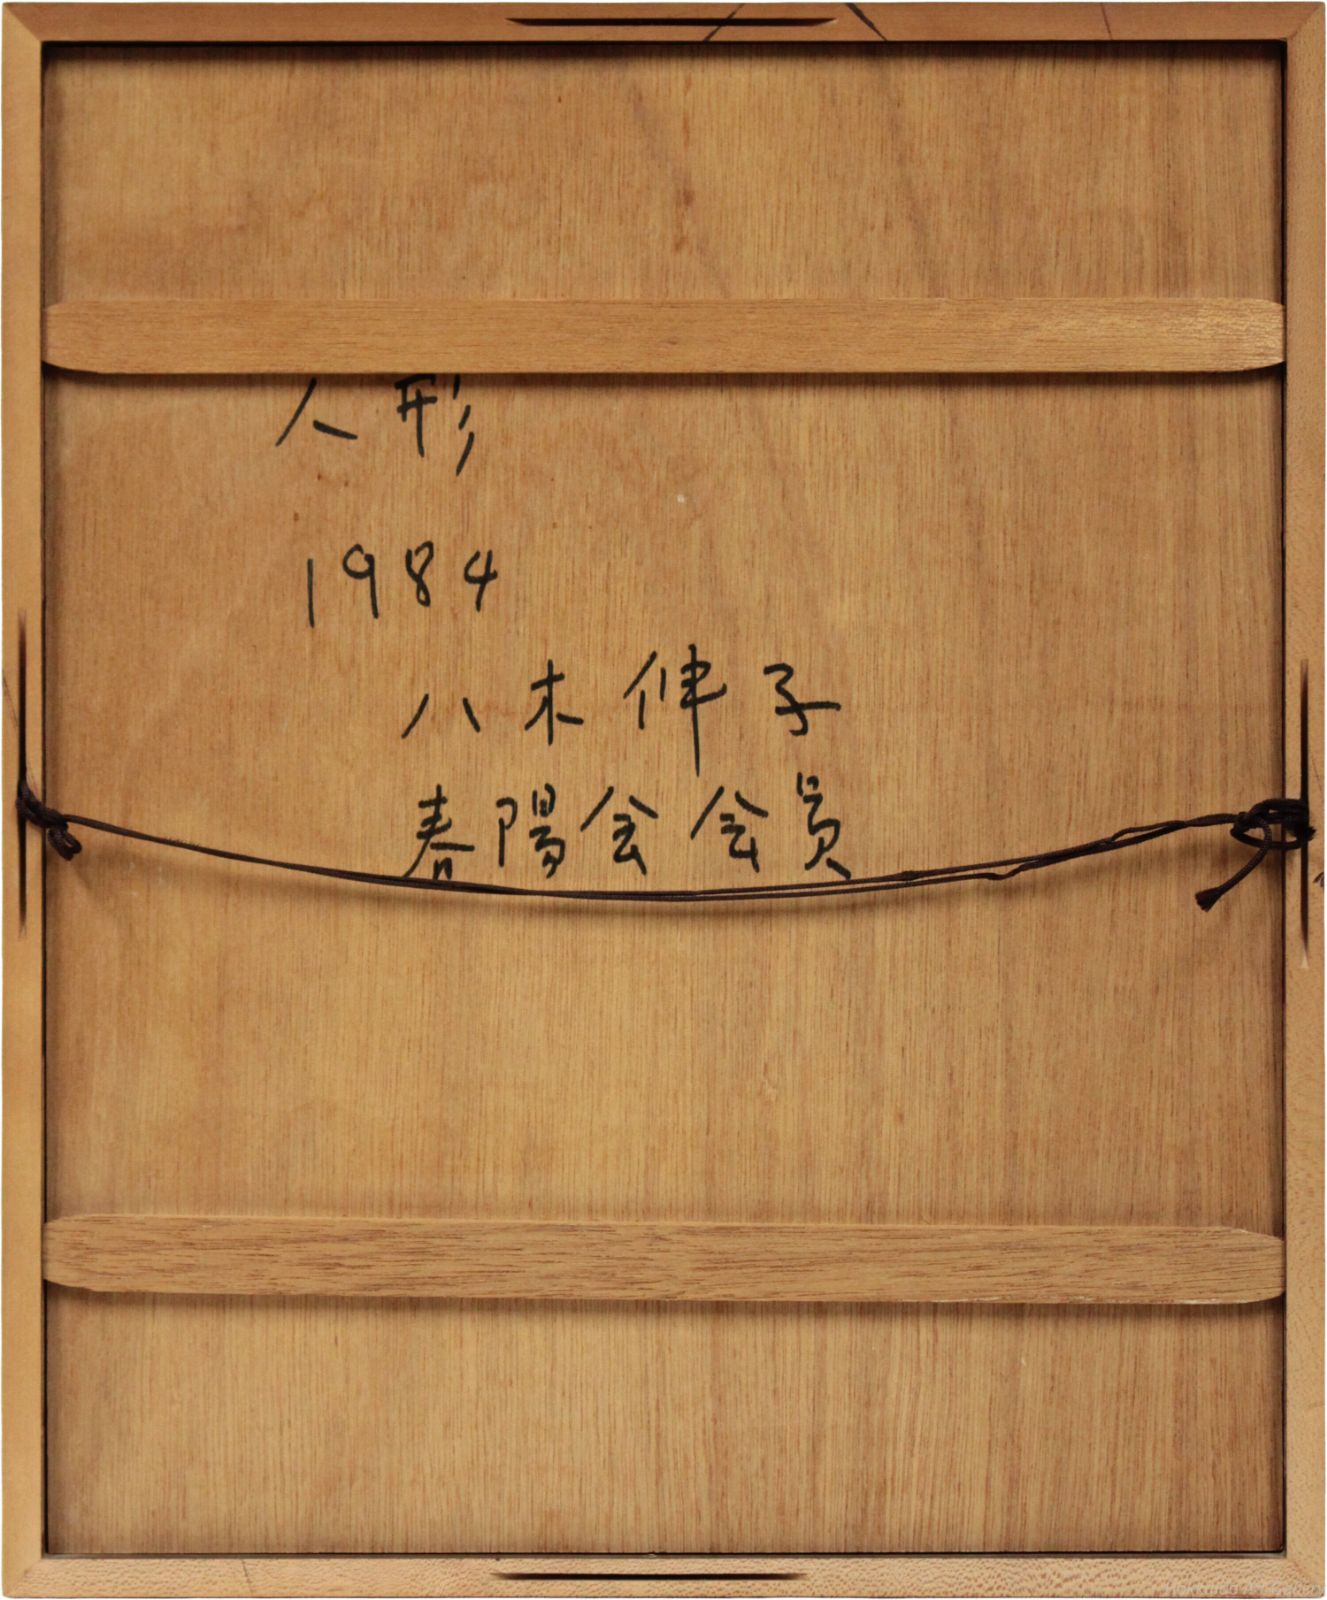 人形
1984
八木伸子
春陽会会員
Hokkaido Art Gallery